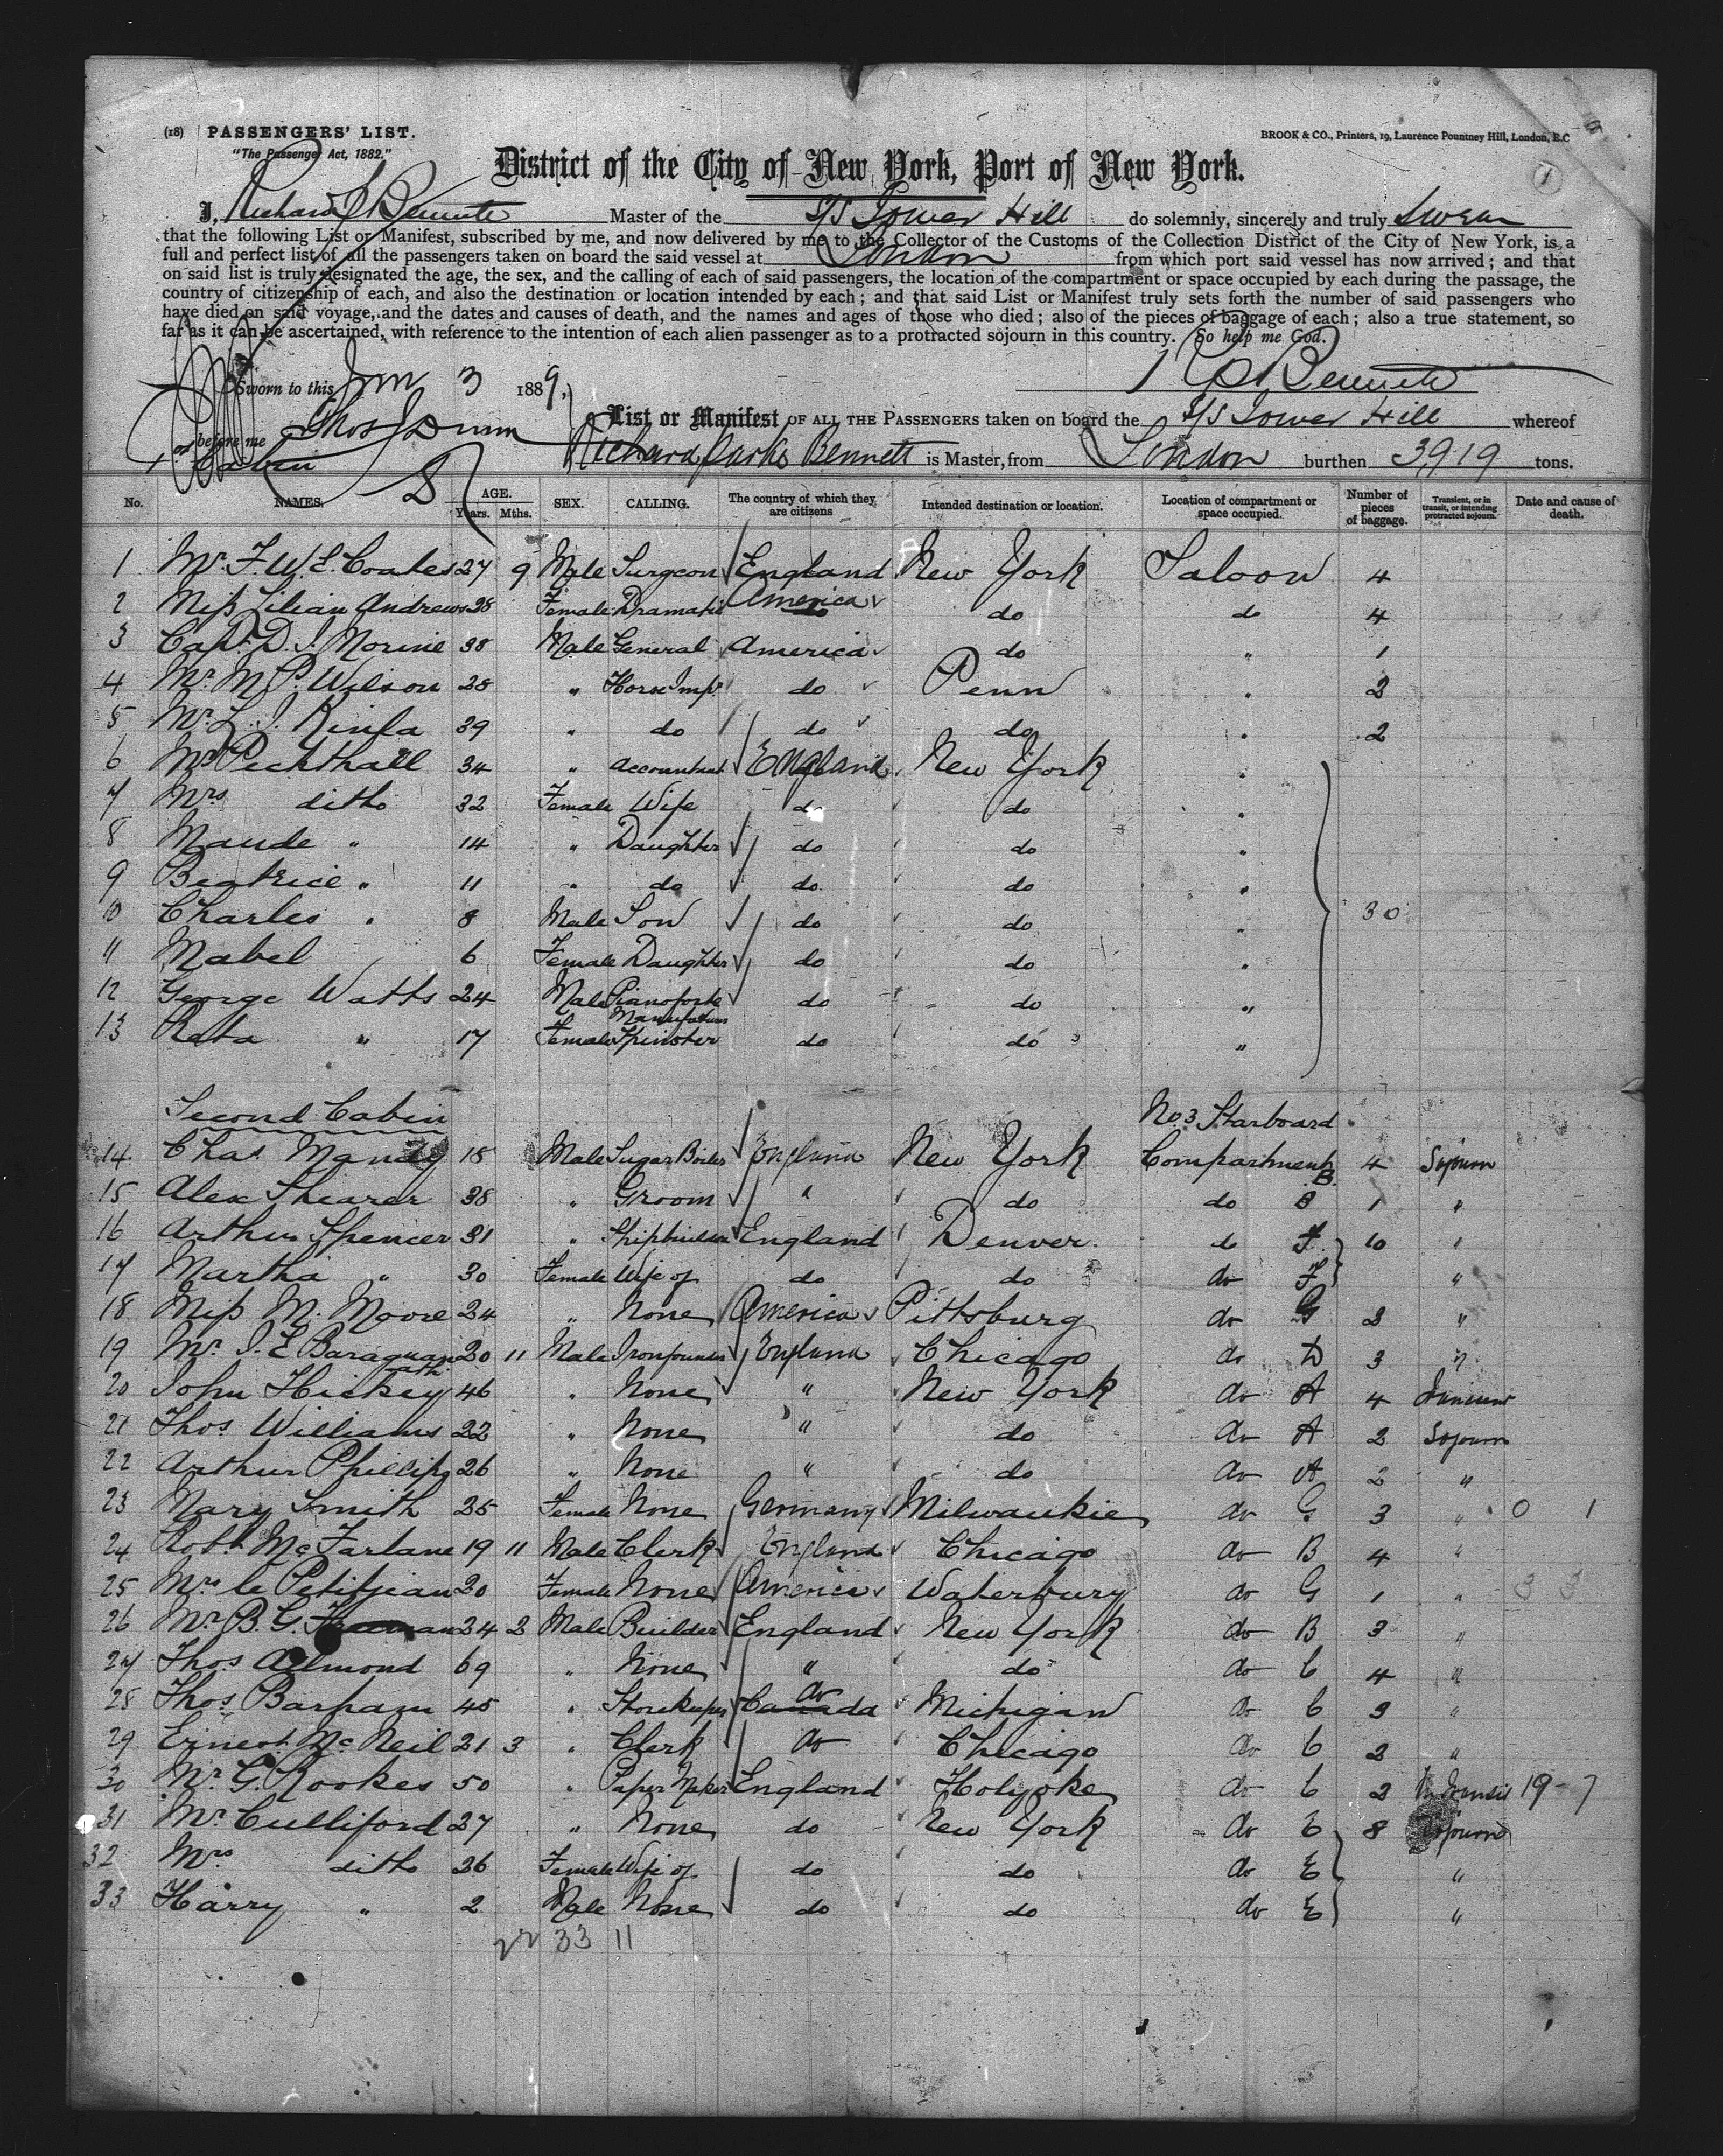 (18) PASSENGERS' LIST.
BROOK & CO., Printers, 19, Laurence Pountney Hill, London, E.C
"The Passenger Act, 1882."
District of the City of New York, Port of New York.
1
I, Richard P Bennett Master of the S/S Tower Hill do solemnly, sincerely and truly Swear
that the following List or Manifest, subscribed by me, and now delivered by me to the Collector of the Customs of the Collection District of the City of New York, is a
full and perfect list of all the passengers taken on board the said vessel at London from which port said vessel has now arrived; and that
on said list is truly designated the age, the sex, and the calling of each of said passengers, the location of the compartment or space occupied by each during the passage, the
country of citizenship of each, and also the destination or location intended by each; and that said List or Manifest truly sets forth the number of said passengers who
have died on said voyage, and the dates and causes of death, and the names and ages of those who died; also of the pieces of baggage of each; also a true statement, so
far as it can be ascertained, with reference to the intention of each alien passenger as to a protracted sojourn in this country. So help me God.
R P Bennett
Sworn to this Jan 3 1889,
before me Thos J Dunn
List or Manifest OF ALL THE PASSENGERS taken on board the S/S Tower Hill whereof
Richard Parks Bennett is Master, from London burthen 3919 tons.
Cabin
No. NAMES. AGE. Years. Mths. SEX. CALLING. The country of which they are citizens Intended destination or location. Location of compartment or space occupied. Number of pieces of baggage. Transient, or in transit, or intending protracted sojourn. Date and cause of death.
1 Mr. F. W. E. Coates 27 9 Male Surgeon England New York Saloon 4
2 Miss Lilian Andrews 28 Female Dramatic America do do 4
3 Capt. D. J. Norine 38 Male General America do " 1
4 Mr M. P. Wilson 28 " Horse Impr do Penn " 2
5 Mr. L. J. 39 " do do do " 2
6 Mr Peckthall 34 " Accountant England New York "
7 Mrs ditto 32 Female Wife do do "
8 Maude " 14 " Daughter do do "
9 Beatrice " 11 " do do do "
10 Charles " 8 Male Son do do " 30
11 Mabel 6 Female Daughter do do "
12 George Watts 24 Male Pianoforte Manufacturer do do "
13 Reta " 17 Female Spinster do do "
Second Cabin No 3 Starboard
14 Chas Mandy 18 Male Sugar Boiler England New York Compartment B. 4 Sojourn
15 Alex Shearer 38 " Groom " do do B 1 "
16 Arthur Spencer 31 " Shipbuilder England Denver. do F 10 "
17 Martha " 30 Female Wife of do do do F "
18 Miss M. Moore 24 " None America Pittsburg do G 2 "
19 Mr. J. E Baragwanath 20 11 Male Ironfounder England Chicago do D 3 "
20 John Hickey 46 " None " New York do A 4 Transient
21 Thos. Williams 22 " None " do do A 2 Sojourn
22 Arthur Phillips 26 " None " do do A 2 "
23 Mary Smith 25 Female None Germany Milwaukie do G 3 " 0 1
24 Robt. McFarlane 19 11 Male Clerk England Chicago do B 4 "
25 Mrs le Petitjean 20 Female None America Waterbury do G 1 " 3 3
26 Mr. B. G. Freeman 24 2 Male Builder England New York do B 3 "
27 Thos Allmond 69 " None " do do C 4 "
28 Thos. Barham 45 " Storekeeper Canada do Michigan do C 3 "
29 Ernest McNeil 21 3 " Clerk do Chicago do C 2 "
30 Mr. G. Rookes 50 " Paper Maker England Holyoke do C 2 In Transit 19-7
31 Mr. Culliford 27 " None do New York do E 8 Sojourn
32 Mrs ditto 26 Female Wife of do do do E "
33 Harry " 2 Male None do do do E "
22 33 11